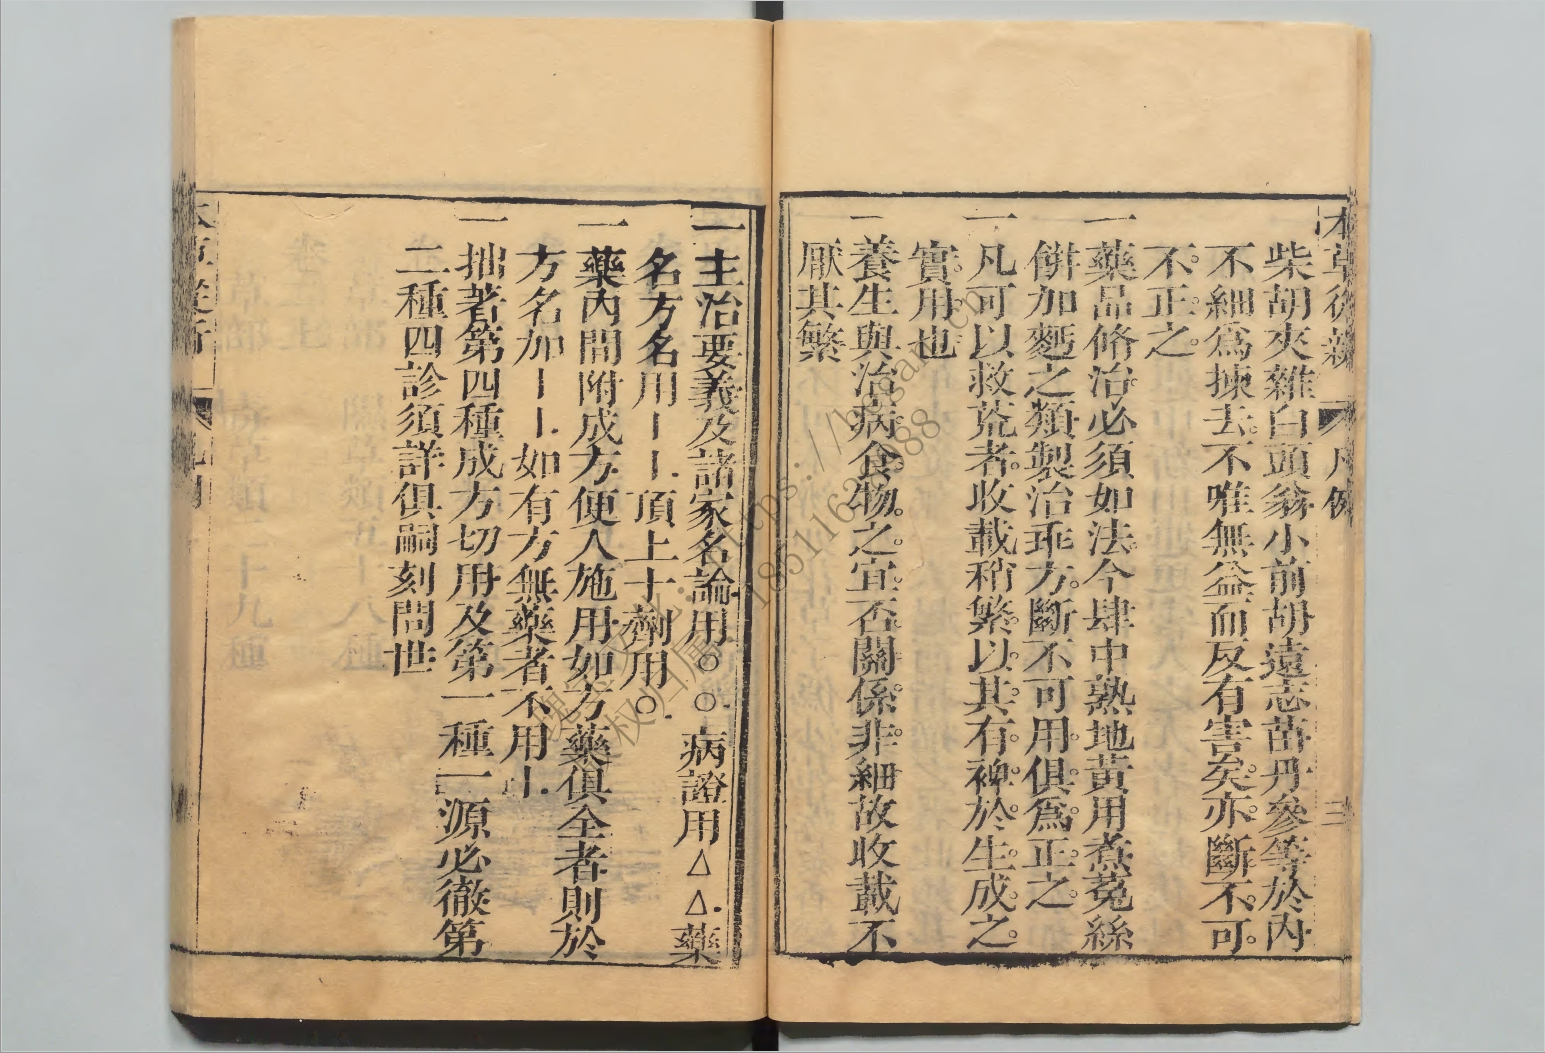 柴胡夾雜白頭翁小前胡遠志苗丹參等於內
不細爲揀去不唯無益而反有害矣亦斷不可
不正之
一藥品脩治必須如法今肆中熟地黃用煮菟絲
餅加麪之類製治乖方斷不可用俱爲正之
一凡可以救荒者收載稍繁以其有裨於生成之
實用也
一養生與治病食物之宜否關係非細故收載不
厭其繁
凡例
三
一主治要義及諸家名論用○○病證用△△藥
名方名用丨丨頂上十劑用○
一藥內間附成方便人施用如方藥俱全者則於
方名加丨丨如有方無藥者不用丨
一拙著第四種成方切用及第一種一源必徹第
二種四診須詳俱嗣刻問世
https://
188511632